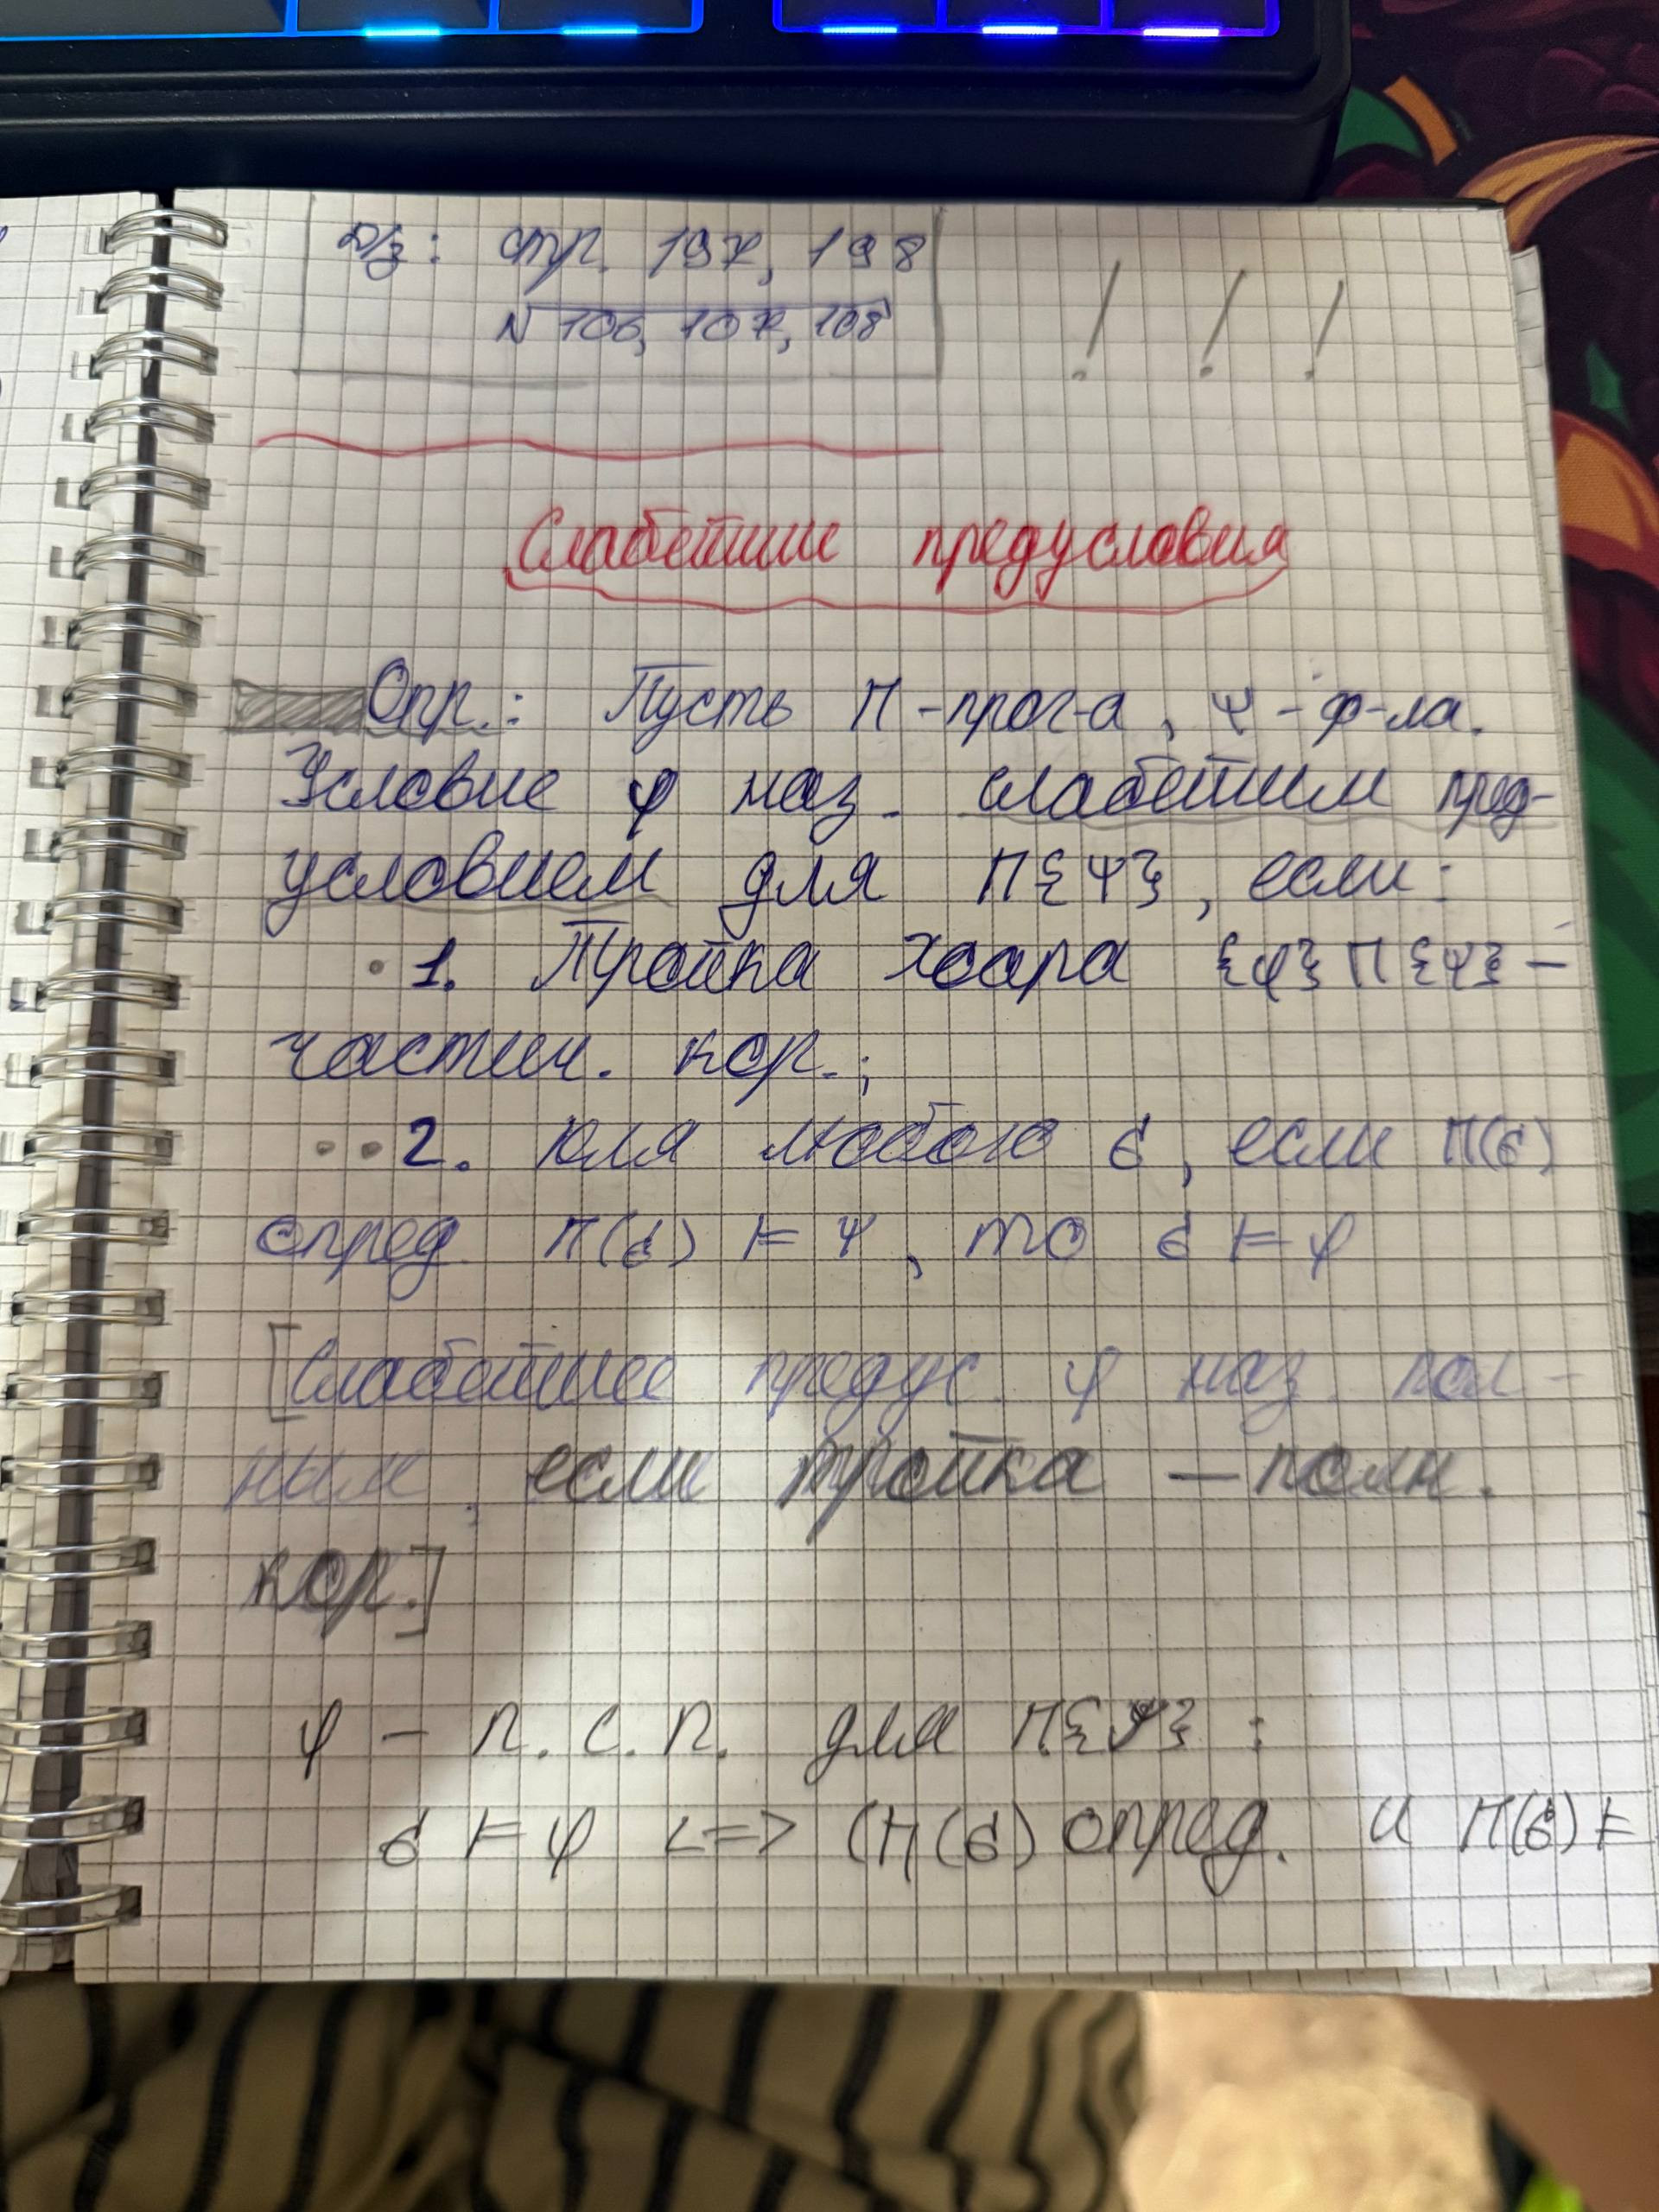 Д/з: стр. 197, 198
N 106, 107, 108
! ! !
Слабейшие предусловия
Опр.: Пусть П-прог-а, ψ - ф-ла.
Условие φ наз. слабейшим пред-
условием для П{ψ}, если:
1. Тройка Хоара {φ}П{ψ} –
частич. кор.;
2. Для любого σ, если П(σ)
опред. П(σ) ⊨ ψ, то σ ⊨ φ
[Слабейшее предус. φ наз. пол-
ным, если тройка – полн.
кор.]
φ – п. с. п. для П{ψ} :
σ ⊨ φ <=> (П(σ) опред. и П(σ) ⊨